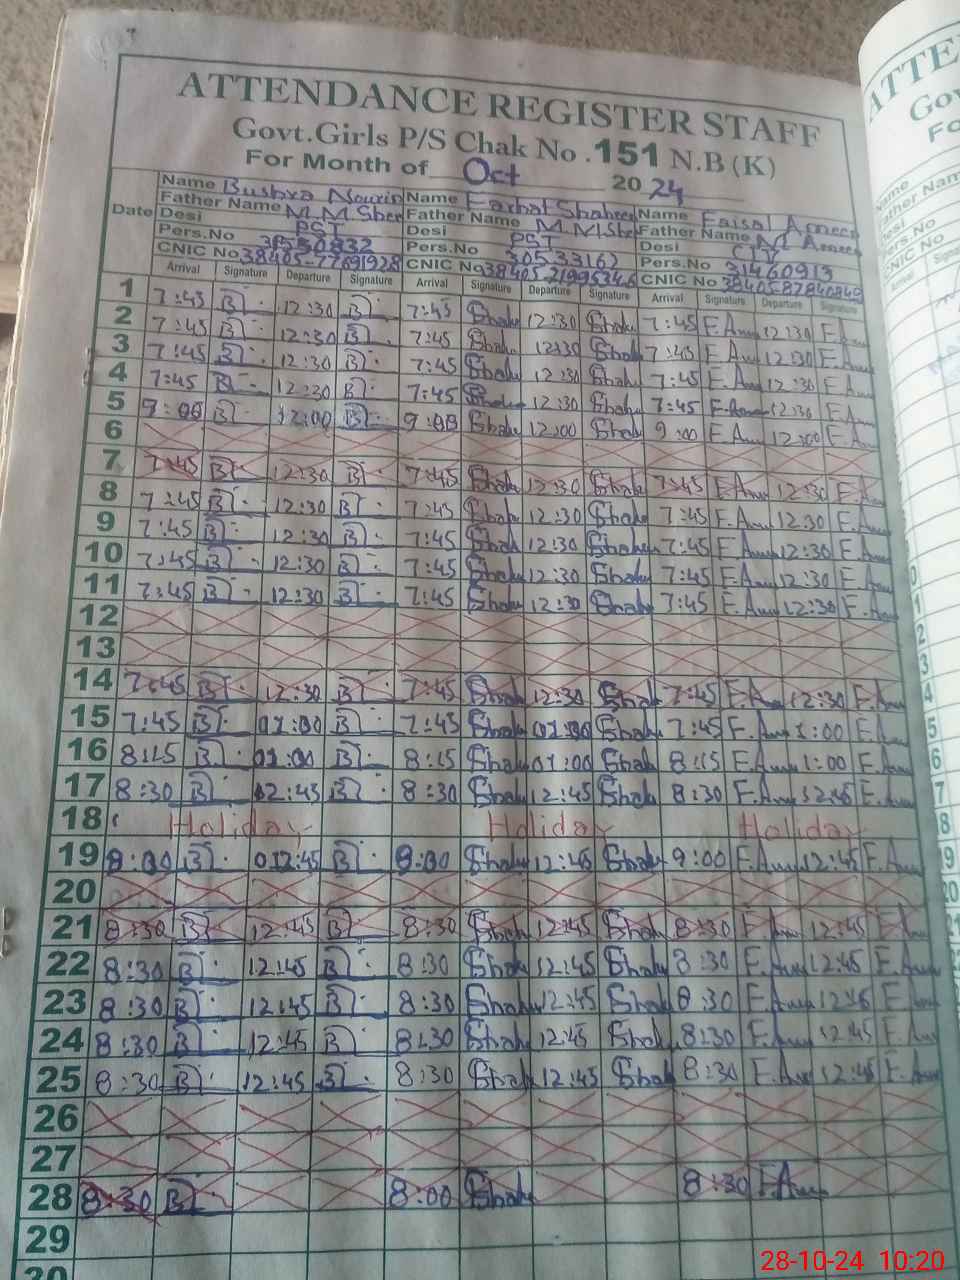 ATTENDANCE REGISTER STAFF
Govt.Girls P/S Chak No .151 N.B (K)
For Month of Oct 2024
Name Bushra Nourin Name Farhat Shaheen Name Faisal Ameen
Father Name M M Sher Father Name M M Sher Father Name M Ameen
Date Desi PST Desi PST Desi
Pers.No Pers.No 30533162 Pers.No 31460913
CNIC No CNIC No CNIC No
Arrival Signature Departure Signature Arrival Signature Departure Signature Arrival Signature Departure Signature
1 7:45 B 12:30 B 7:45 Shah 12:30 Shah 7:45 F.Am 12:30 F.Am
2 7:45 B 12:30 B 7:45 Shah 12:30 Shah 7:45 F Am 12:30 F Am
3 7:45 B 12:30 B 7:45 Shah 12:30 Shah 7:45 F Am 12:30 F Am
4 7:45 B 12:30 B 7:45 Shah 12:30 Shah 7:45 F.Am 12:30 F.Am
5 9:00 B 12:00 B 9:00 Shah 12:00 Shah 9:00 F Am 12:00 F Am
6
7 7:45 B 12:30 B 7:45 Shah 12:30 Shah 7:45 F.Am 12:30 F.Am
8 7:45 B 12:30 B 7:45 Shah 12:30 Shah 7:45 F.Am 12:30 F.Am
9 7:45 B 12:30 B 7:45 Shah 12:30 Shah 7:45 F.Am 12:30 F.Am
10 7:45 B 12:30 B 7:45 Shah 12:30 Shah 7:45 F.Am 12:30 F.Am
11 7:45 B 12:30 B 7:45 Shah 12:30 Shah 7:45 F.Am 12:30 F.Am
12
13
14 7:45 B 12:30 B 7:45 Shah 12:30 Shah 7:45 F.Am 12:30 F.Am
15 7:45 B 01:00 B 7:45 Shah 01:00 Shah 7:45 F.Am 1:00 F.Am
16 8:15 B 01:00 B 8:15 Shah 01:00 Shah 8:15 F.Am 1:00 F.Am
17 8:30 B 12:45 B 8:30 Shah 12:45 Shah 8:30 F.Am 12:45 F.Am
18 Holiday Holiday Holiday
19 B 12:45 B Shah 12:45 Shah 9:00 F.Am 12:45 F.Am
20
21 8:30 B 12:45 B 8:30 Shah 12:45 Shah 8:30 F.Am 12:45 F.Am
22 8:30 B 12:45 B 8:30 Shah 12:45 Shah 8:30 F.Am 12:45 F.Am
23 8:30 B 12:45 B 8:30 Shah 12:45 Shah 8:30 F.Am 12:45 F.Am
24 8:30 B 12:45 B 8:30 Shah 12:45 Shah 8:30 F.Am 12:45 F.Am
25 8:30 B 12:45 B 8:30 Shah 12:45 Shah 8:30 F.Am 12:45 F.Am
26
27
28 8:30 B 8:00 Shah 8:30 F.Am
29
30
28-10-24 10:20